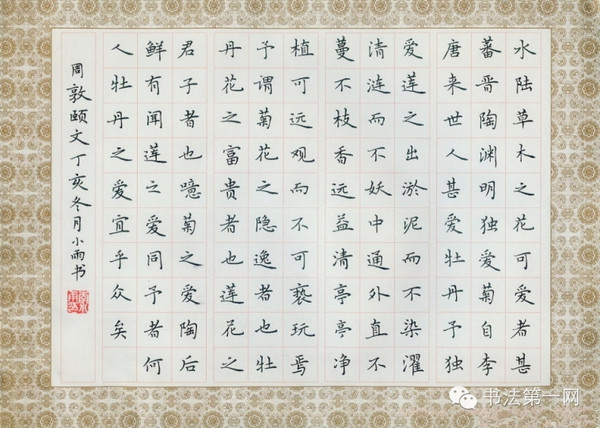 水陆草木之花可爱者甚
蕃晋陶渊明独爱菊自李
唐来世人甚爱牡丹予独
爱莲之出淤泥而不染濯
清涟而不妖中通外直不
蔓不枝香远益清亭亭净
植可远观而不可亵玩焉
予谓菊花之隐逸者也牡
丹花之富贵者也莲花之
君子者也噫菊之爱陶后
鲜有闻莲之爱同予者何
人牡丹之爱宜乎众矣
周敦颐文丁亥冬月小雨书
书法第一网